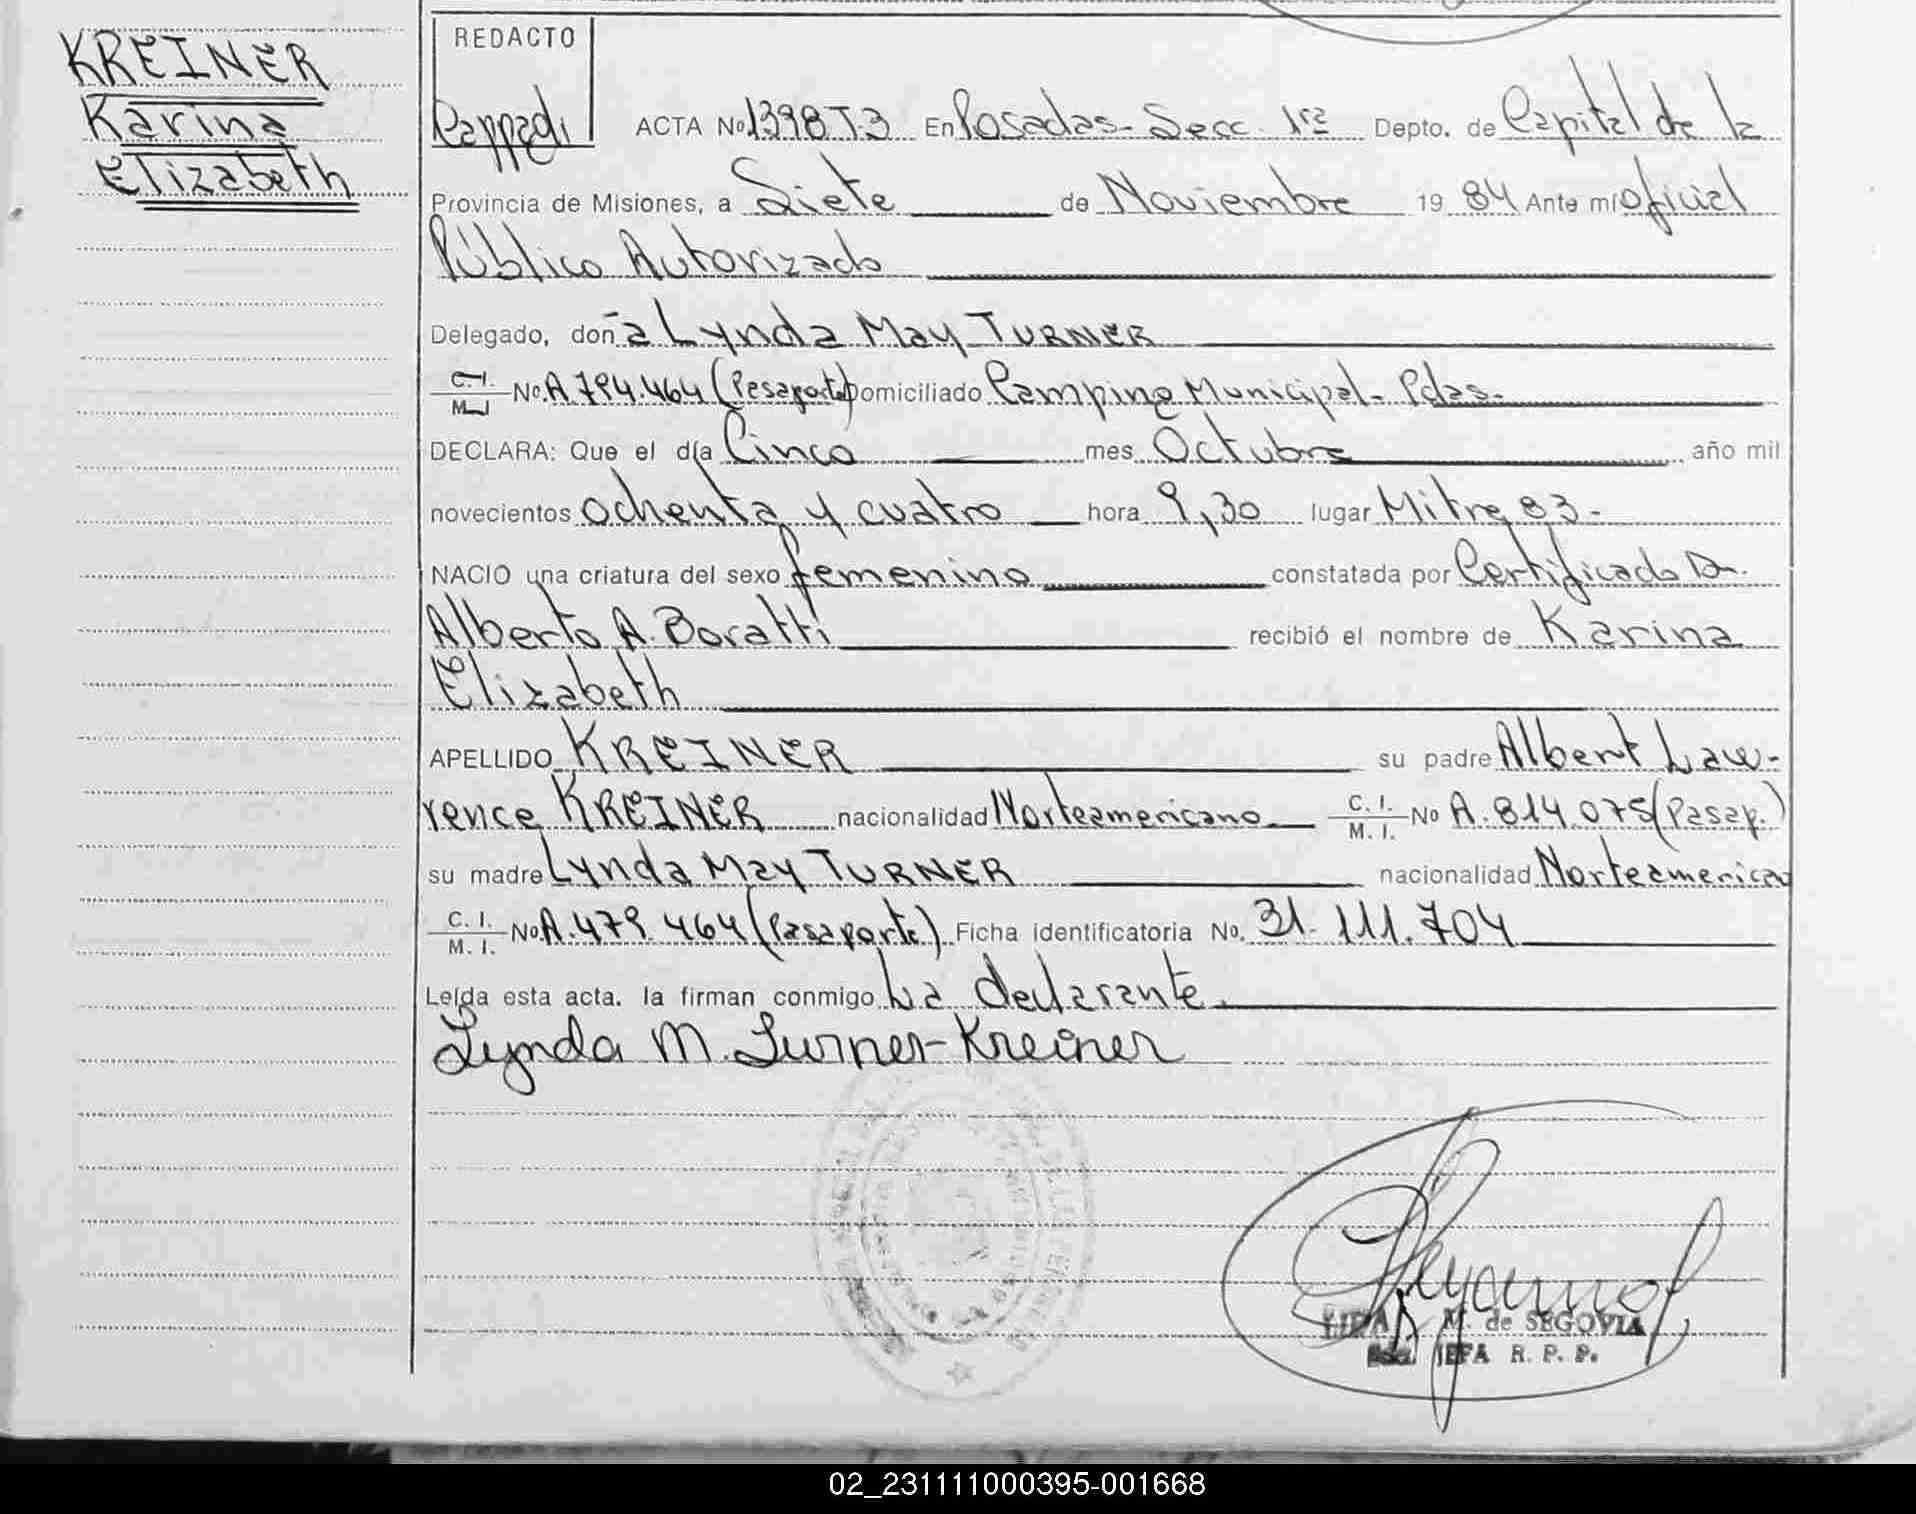 KREINER
Karina
Elizabeth
REDACTO
ACTA No 1398 T.3 En Posadas- Secc. 1ra Depto. de Capital de la
Provincia de Misiones, a Siete de Noviembre 19 84 Ante mí oficial
Público Autorizado
Delegado, doña Lynda May TURNER
C.I. M.I No. A 794.464 (Pasaporte) Domiciliado Camping Municipal- Pdas-
DECLARA: Que el día Cinco mes Octubre año mil
novecientos ochenta y cuatro hora 9,30 lugar Mitre 83-
NACIO una criatura del sexo femenino constatada por Certificado Dr.
Alberto A. Boratti recibió el nombre de Karina
Elizabeth
APELLIDO KREINER su padre Albert Law-
rence KREINER nacionalidad Norteamericano C. I. M. I. No A. 814.075 (Pasap.)
su madre Lynda May TURNER nacionalidad Norteamerican
C. I. M. I. No. A. 479.464 (Pasaporte) Ficha identificatoria No. 31.111.704
Leída esta acta. la firman conmigo La declarante.
Lynda M. Turner-Kreiner
M. de SEGOVIA
JEFA R. P. P.
02_231111000395-001668